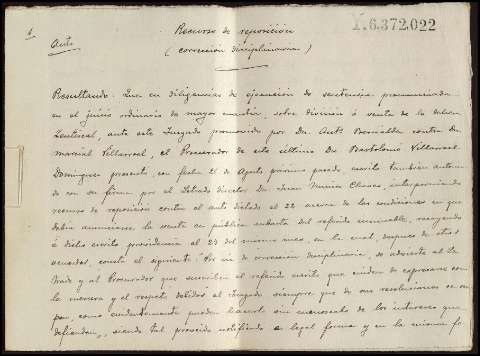 6
Y.6.372,022
Auto
Recurso de reposicion
(correccion disciplinaria)
Resultando: Que en diligencias de ejecución de sentencia pronunciada
en el juicio ordinario de mayor cuantia, sobre división ó venta de la dehesa
ante este Juzgado promovido por Dn. Antº contra Dn.
Marcial Villarroel, el Procurador de este ultimo Dn. Bartolomé Villarroel
Dominguez presentó, con fecha 21 de Agosto próximo pasado, escrito tambien autoriza-
do con su firma por el Letrado director Dn. Juan Muñiz interponiendo
recurso de reposición contra el auto dictado el 22 acerca de las condiciones en que
debia anunciarse la venta en publica subasta del referido inmueble, recayendo
á dicho escrito providencia el 23 del mismo mes, en la cual, despues de otros
consta el siguiente: Por via de correccion disciplinaria, se advierte al Le-
trado y al Procurador que suscriben el referido escrito que cuiden de expresarse con
la mesura y el respeto debidos al Juzgado siempre que de sus resoluciones se ocu-
pen, como cumplidamente pueden hacerlo sin menoscabo de los intereses que
defiendan, siendo tal proveido notificado en legal forma y en la misma fe